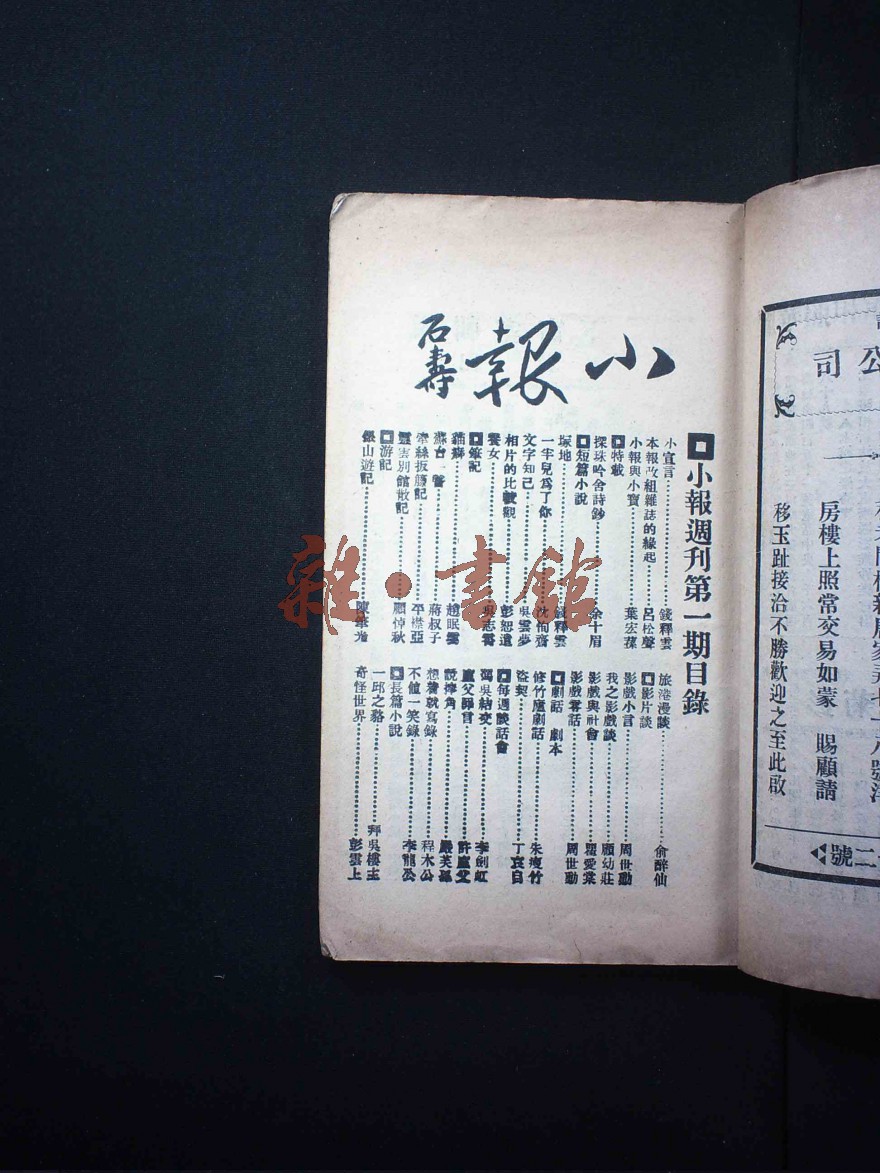 小報
石壽
小報週刊第一期目錄
小宣言 錢釋雲
本報改組雜誌的緣起 呂松聲
小報與小寶 葉宏葆
特載
探珠吟舍詩鈔 余十眉
短篇小說
墳地 錢釋雲
一半兒為了你 沈侚齋
文字知己 吳雲夢
相片的比較觀 彭恕遺
養女 吳志雲
筆記
貓癖 趙眠雲
蘇台一瞥 蔣叔子
牽絲扳籐記 平襟亞
靈雲別館散記 顧悼秋
游記
銀山遊記 陳筆光
旅港漫談 俞醉仙
影片談
影戲小言 周世勳
我之影戲談 顧幼莊
影戲與社會 瞿愛棠
影戲零話 周世勳
劇話 劇本
修竹廬劇話 朱瘦竹
盜契 丁哀自
每週談話會
濁吳結交 李劍虹
盧父罪言 許盧父
說摔角 嚴芙孫
想着就寫錄 程木公
不値一笑錄 李龍公
長篇小說
一邱之貉 拜吳樓主
奇怪世界 彭雲上
公司
房樓上照常交易如蒙 賜顧請
移玉趾接洽不勝歡迎之至此啟
二號
雜·書館